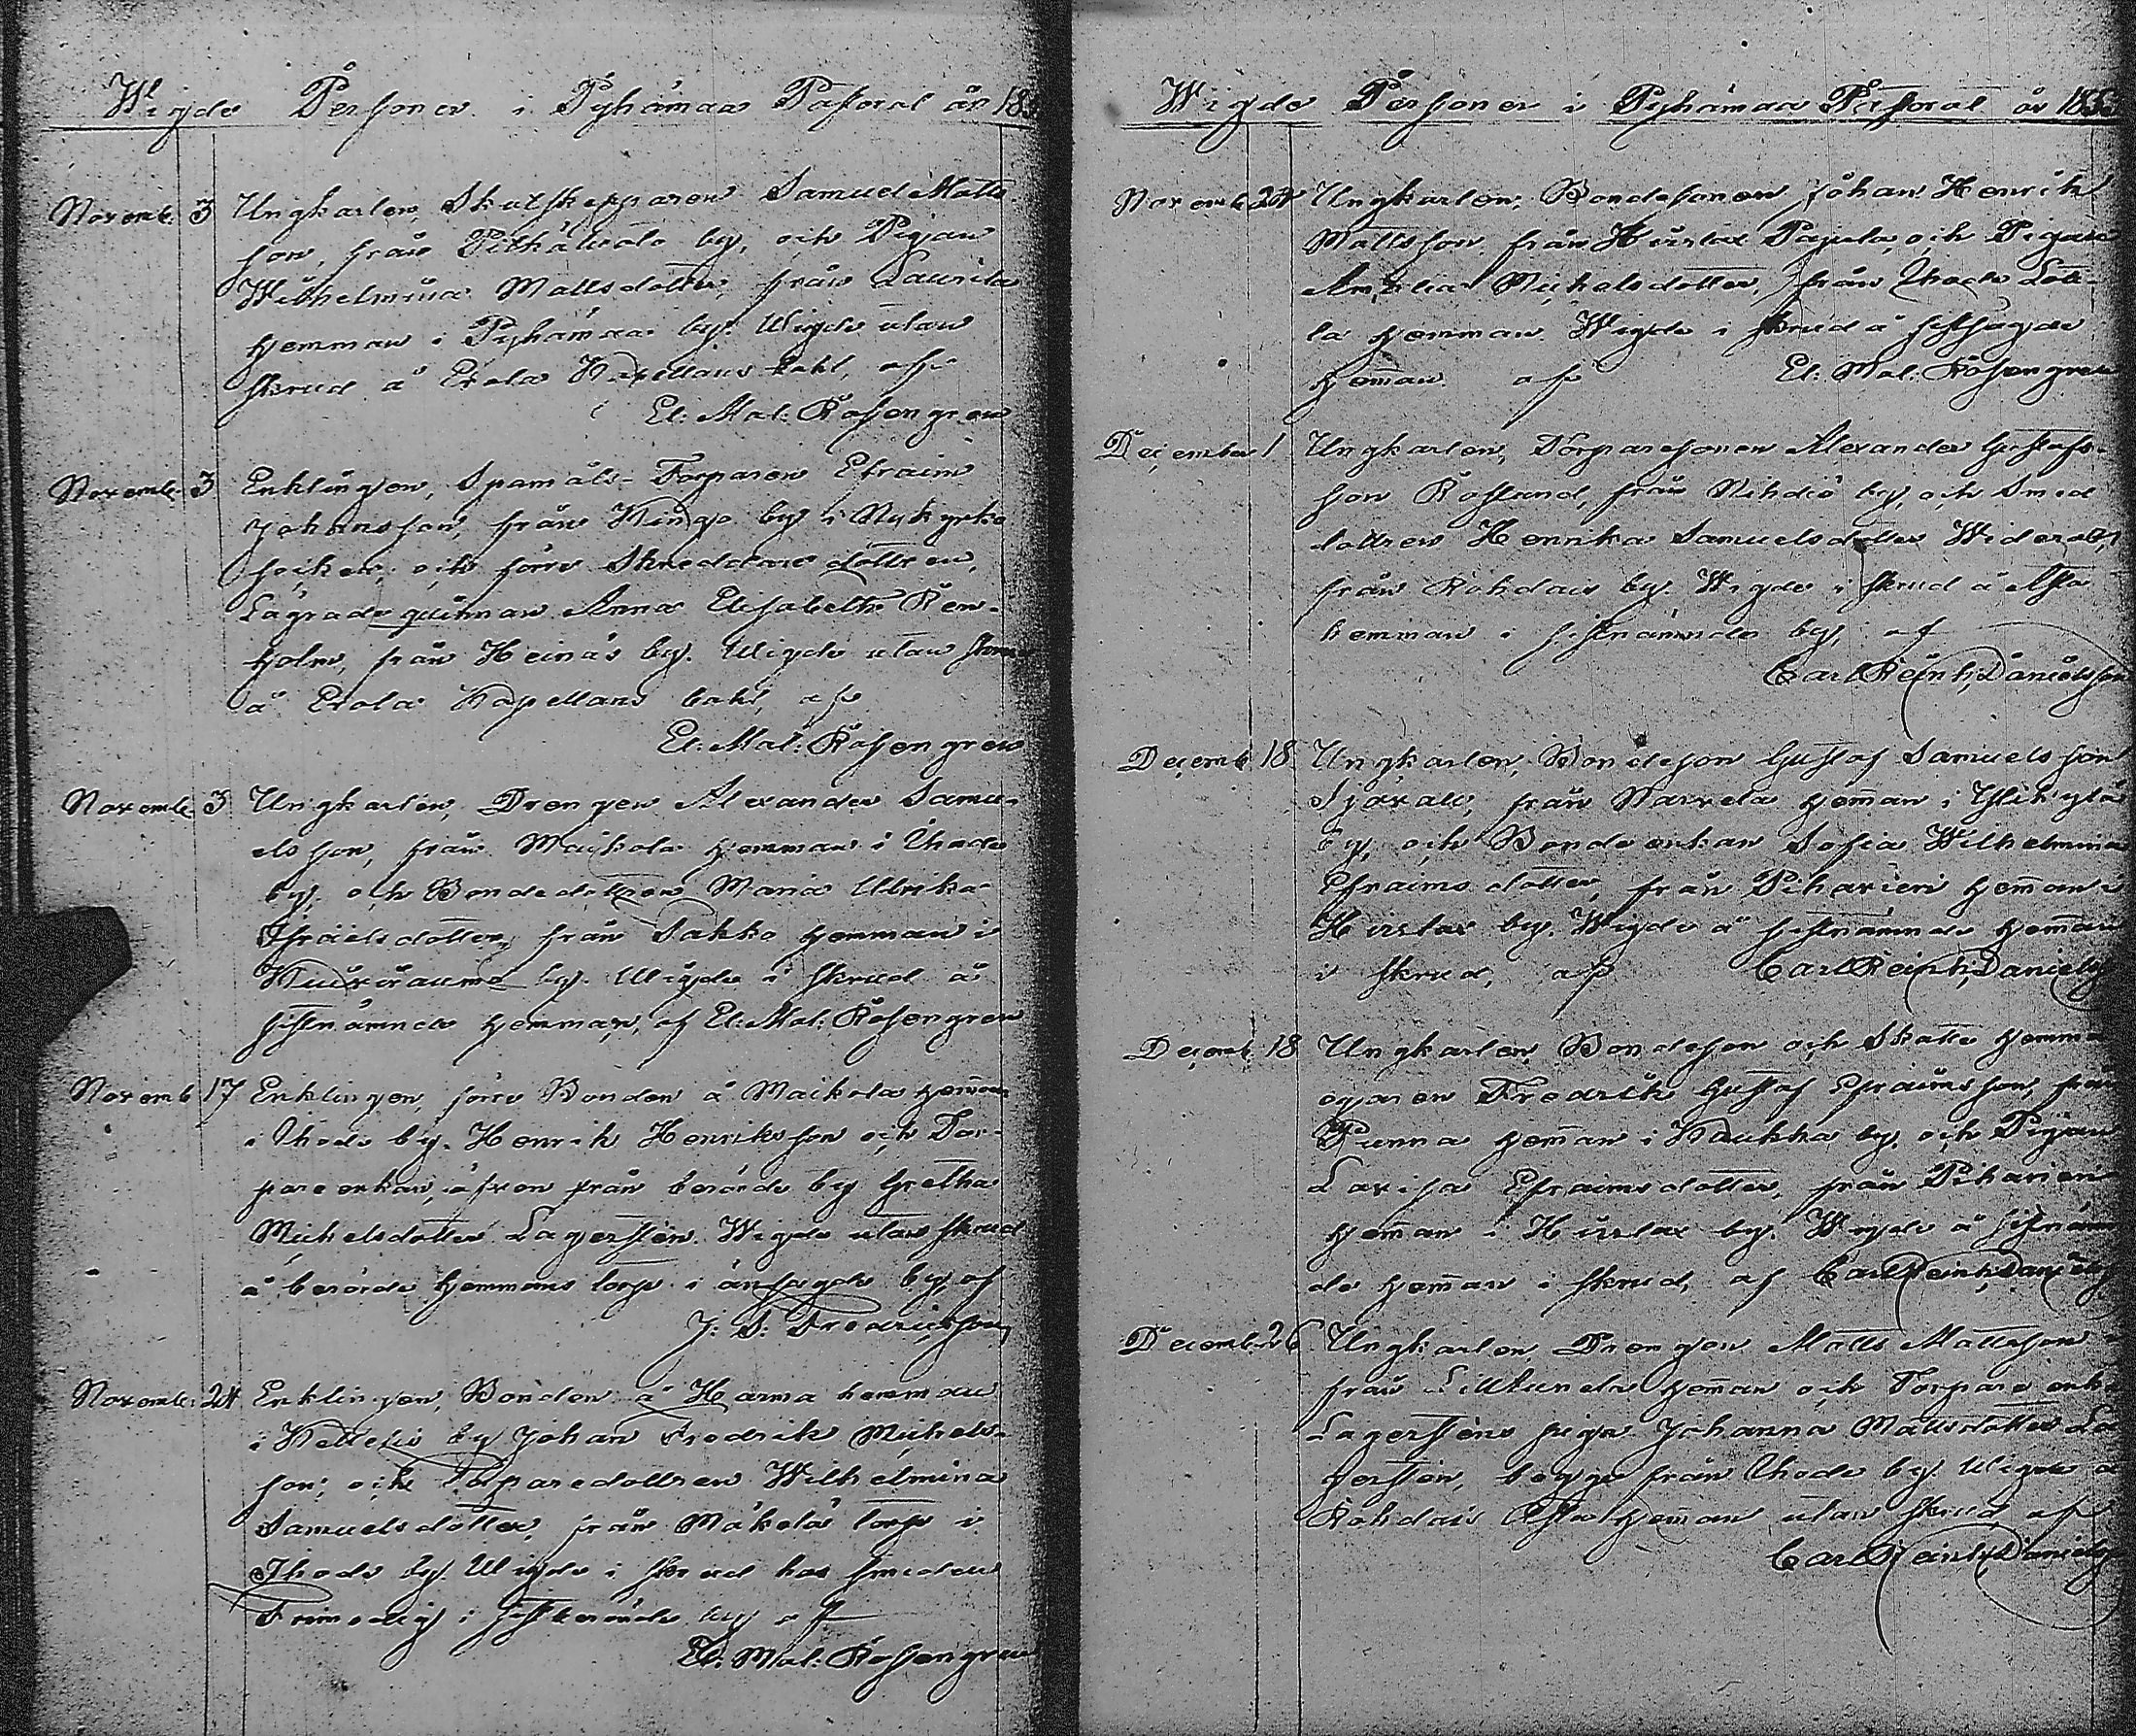 Wigde Personer i Pyhämaa Pastorat år 18
Novemb. 3 Ungkarlen, Skutskepparen Samuel Matts
son, från by, och Pigan
Wilhelmina Mattsdotter, från Laurila
hemman i Pyhämaa by. Wigde utan
skrud å Erola Kapellans bohl, af
El: Mal: Rosengren
Novemb. 3 Enklingen, Spanmåls-Torparen Efraim
Johansson, från by i Nykyrko
socken, och förre Skreddare dottren,
Lägrade qwinnan Anna Elisabeth Ren-
holm, från Heinäs by. Wigde utan skrud
å Erola Kapellans bohl, af
El: Mal: Rosengren
Novemb. 3 Ungkarlen, Drengen Alexander Samu-
elsson, från Maikola hemman i Ihode
by. och Bondedottren Maria Ulrika
Israelsdotter, från Sakko hemman i
by. Wigde i skrud å
sistnämnde hemman, af El: Mal: Rosengren
Novemb 17 Enklingen, förre Bonden å Maikola hemman
i Ihode by. Henrik Henriksson och Tor-
pareenkan, äfven från berörde by Gretha
Michelsdotter Lagersten. Wigde utan skrud
å berörde hemmans torp i ansagde by, af
J: S: Fredricsson
Novemb. 24 Enklingen, Bonden å Harma hemman
i by Johan Fredrik Michels-
son, och Torparedottren Wilhelmina
Samuelsdotter, från Mäkelä torp i
Ihode by. Wigde i skrud hos smeden
Frimodig i sistberörde by af
El: Mal: Rosengren
Wigde Personer i Pyhämaa Pastorat år 185
Novemb 24 Ungkarlen, Bondesonen Johan Henrik
Mattsson, från Hirslax Pajula, och Pigan
Amalia Michelsdotter, från Ihode
la hemman. Wigde i skrud å sistsagde
hemman af El: Mal: Rosengren
December 1 Ungkarlen, Torparesonen Alexander Gustafs-
son Roslund, från by, och Smed
dottren Henrika Samuelsdotter
från Rohdais by. Wigde i skrud å
hemman i sistnämnde by, af
Carl Reinh. Danielsson
Decemb. 18 Ungkarlen, Bondeson Gustaf Samuelsson
från hemman i
by, och Bondeenkan Sofia Wilhelmina
Efraimsdotter, från Pihavieri hemman i
Hirslax by. Wigde å sistnämnde hemman
i skrud, af Carl Reinh. Daniels
Decemb. 18 Ungkarlen, Bondeson och Skatte hemmans
egaren Fredrik Gustaf Efraimsson, från
Punna hemman i Kaukka by, och Pigan
Lovisa Efraimsdotter, från Pihavieri
hemman i Hirslax by. Wigde å sistnämn
de hemman i skrud, af Carl Reinh. Daniels
Decemb. 26 Ungkarlen, Drengen Matts Mattsson
från hemman och Torpare enke
Lagerstens piga Johanna Mattsdotter La
gersten, begge från Ihode by. Wigde å
Rohdais hemman utan skrud af
Carl Reinh. Daniels